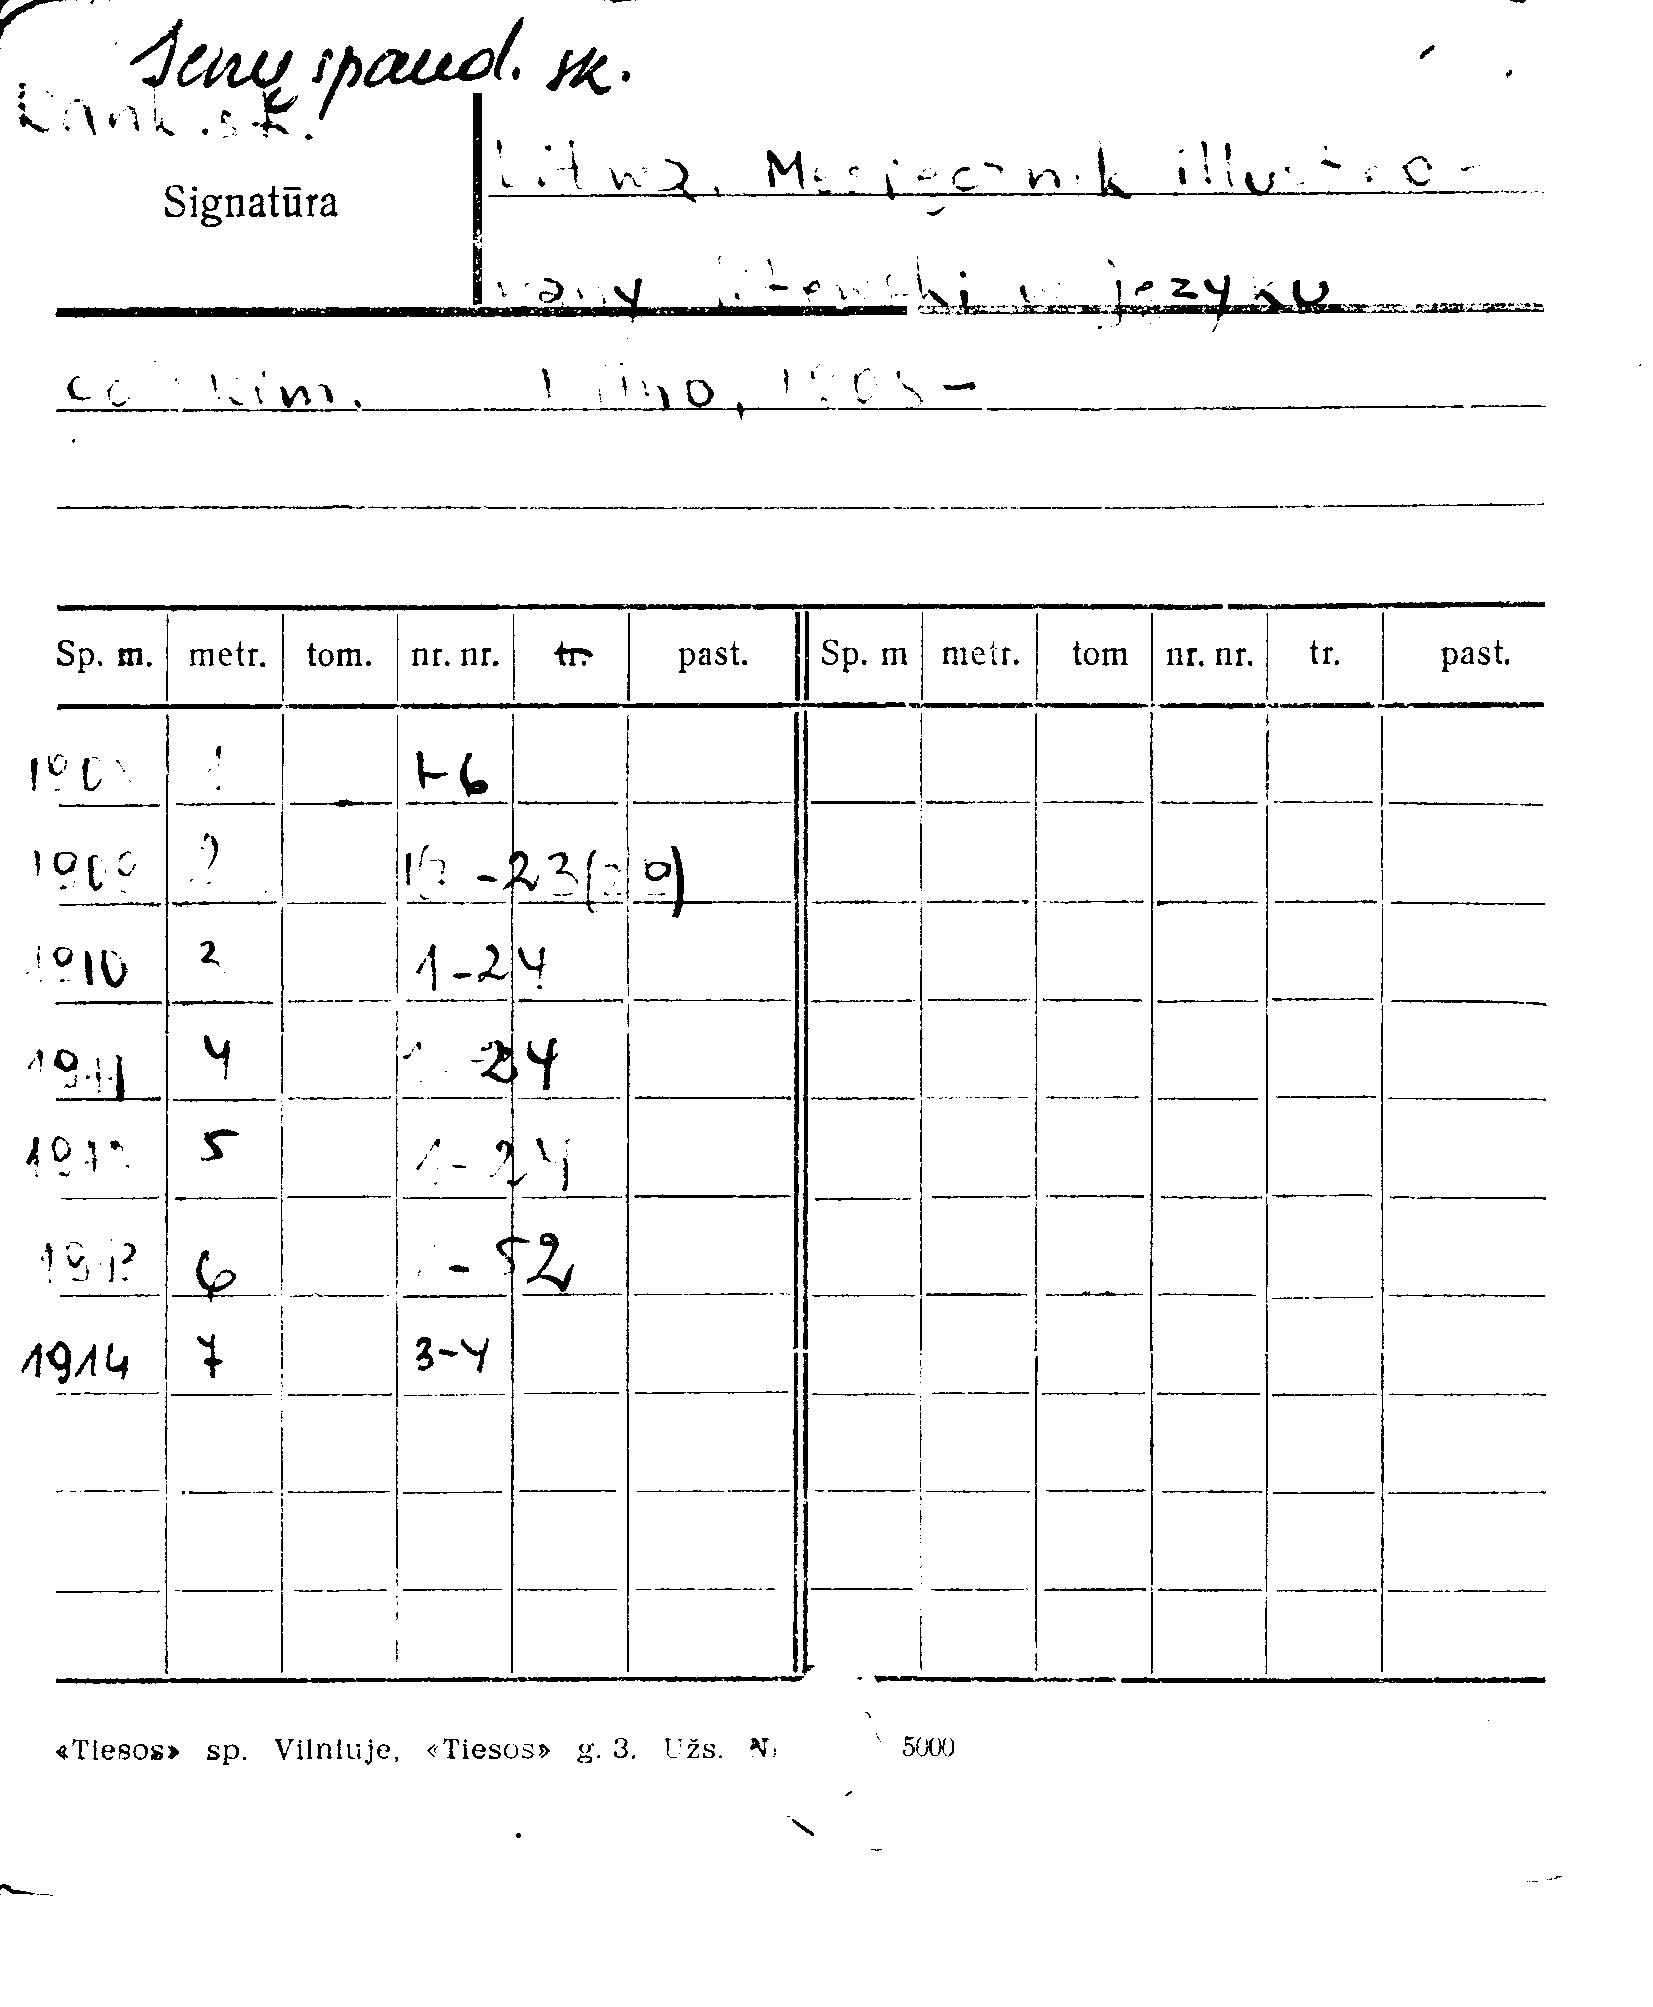 Senų spaud. sk.
Rank. sk.
Signatūra
Litwa. Miesięcznik illustro-
wany litewski w języku
polskim. Wilno, 1908-
Sp. m. metr. tom. nr. nr. tr. past. Sp. m metr. tom nr. nr. tr. past.
1908 1 1-6
1909 2 -23
1910 1-24
1911 4 1-24
1912 5 1-24
1913 6 - 52
1914 7 3-4
«Tiesos» sp. Vilniuje, «Tiesos» g. 3. Užs. N. 5000